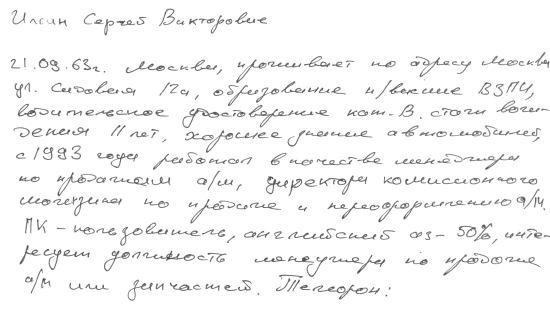 Илсин Сергей Викторович
21.09.63г. Москва, проживает по адресу Москва
ул. Садовая 12а, образование н/высшее ВЗПИ,
водительское удостоверение кат. В. стаж вож-
дения 11 лет, хорошее знание автомобилей,
с 1993 года работал в качестве менеджера
по продажам а/м, директора комиссионного
магазина по продаже и переоформлению а/м.
ПК - пользователь, английский яз - 50%, инте-
ресует должность менеджера по продаже
а/м или запчастей. Телефон: